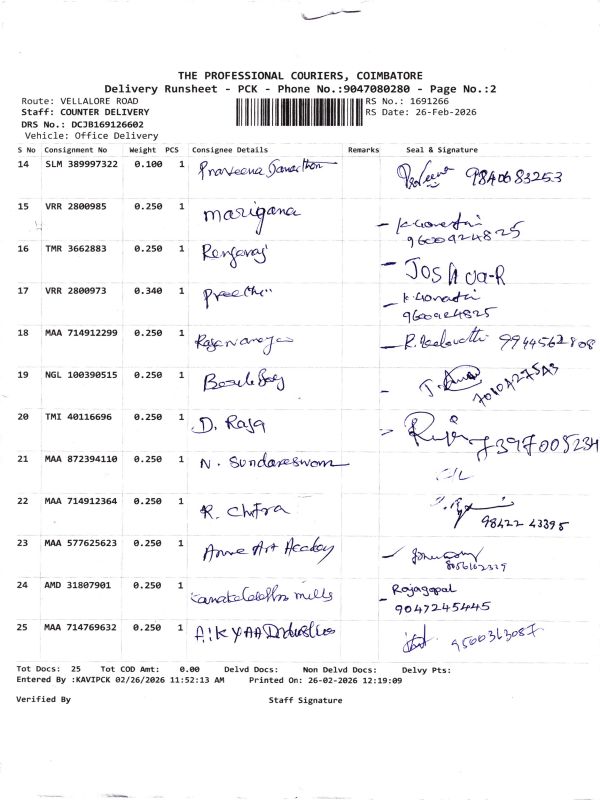 THE PROFESSIONAL COURIERS, COIMBATORE
Delivery Runsheet - PCK - Phone No.:9047080280 - Page No.:2
Route: VELLALORE ROAD RS No.: 1691266
Staff: COUNTER DELIVERY RS Date: 26-Feb-2026
DRS No.: DCJB169126602
Vehicle: Office Delivery
S No Consignment No Weight PCS Consignee Details Remarks Seal & Signature
14 SLM 389997322 0.100 1 Praveena 9840683253
15 VRR 2800985 0.250 1 marigana
9600924825
16 TMR 3662883 0.250 1 Rengaraj JOSHUA-R
17 VRR 2800973 0.340 1 Preethi
9600924825
18 MAA 714912299 0.250 1
19 NGL 100390515 0.250 1
20 TMI 40116696 0.250 1 D. Raja
21 MAA 872394110 0.250 1 N. Sundareswaran
22 MAA 714912364 0.250 1 R. Chitra
98422 43395
23 MAA 577625623 0.250 1 Art
24 AMD 31807901 0.250 1 mills Rajagopal
9047245445
25 MAA 714769632 0.250 1
Tot Docs: 25 Tot COD Amt: 0.00 Delvd Docs: Non Delvd Docs: Delvy Pts:
Entered By :KAVIPCK 02/26/2026 11:52:13 AM Printed On: 26-02-2026 12:19:09
Verified By Staff Signature